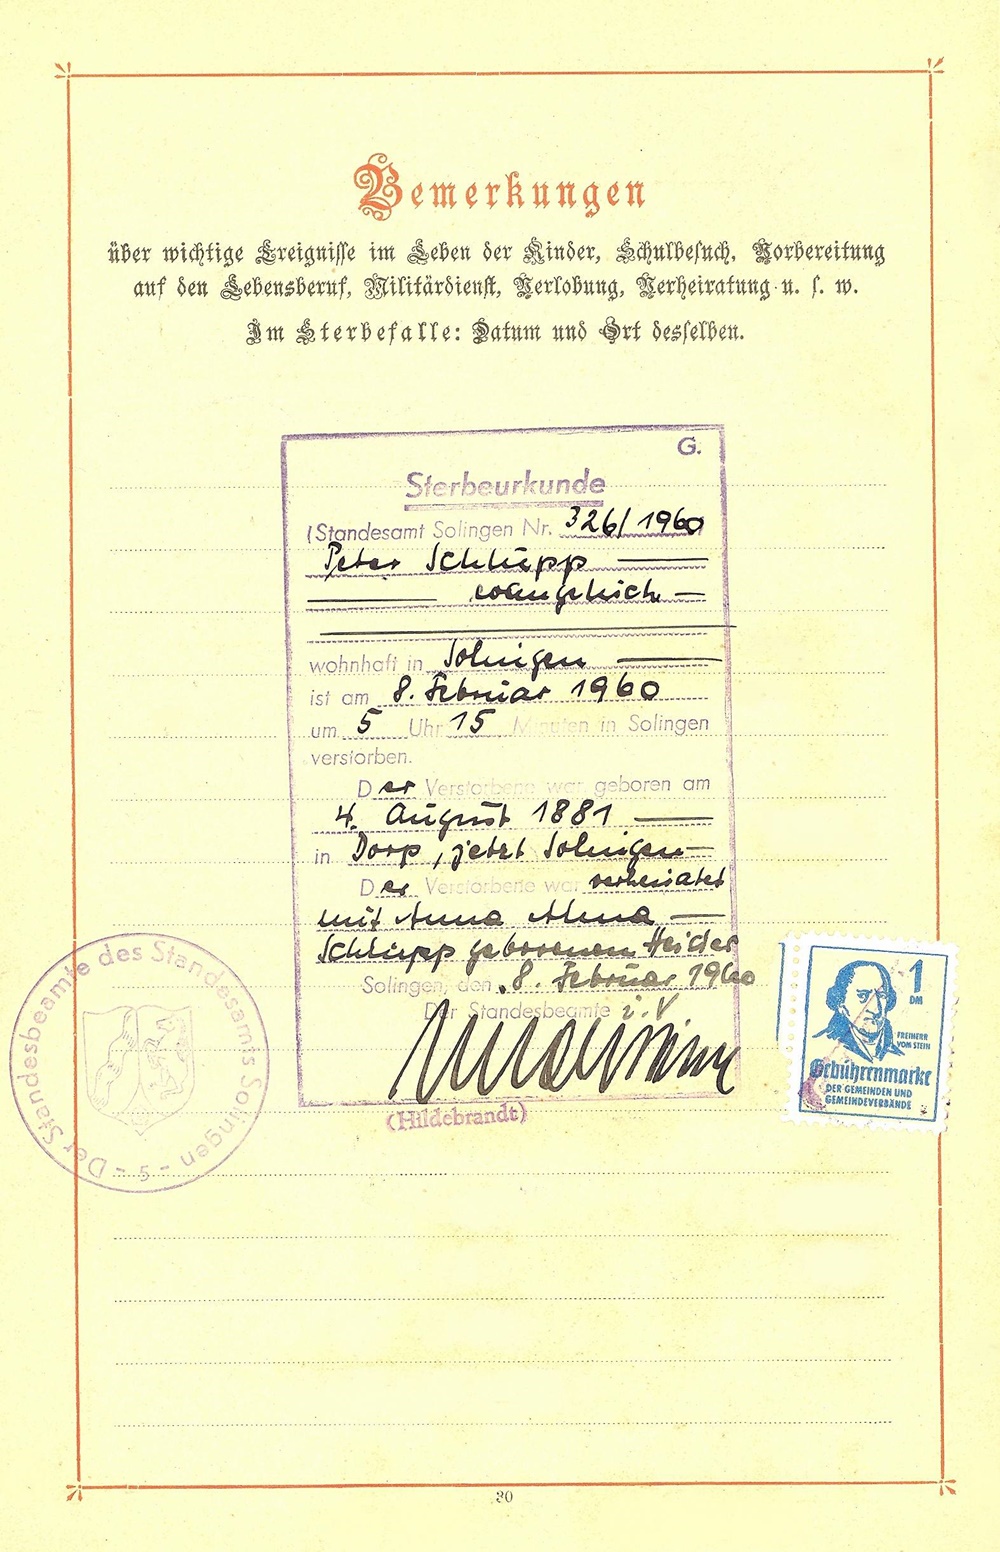 Bemerkungen
über wichtige Ereignisse im Leben der Kinder, Schulbesuch, Vorbereitung
auf den Lebensberuf, Militärdienst, Verlobung, Verheiratung u. s. w.
Im Sterbefalle: Datum und Ort desselben.
G.
Sterbeurkunde
(Standesamt Solingen Nr. 326/1960
Peter Schlüpp
evangelisch
wohnhaft in Solingen
ist am 8. Februar 1960
um 5 Uhr 15 Minuten in Solingen
verstorben.
Der Verstorbene war geboren am
4. August 1881
in Dorp, jetzt Solingen
Der Verstorbene war verheiratet
mit Anna Alma
Schlüpp geborenen Heider
Solingen, den 8. Februar 1960
Der Standesbeamte i.V
(Hildebrandt)
Der Standesbeamte des Standesamts Solingen
- 5 -
1
DM
FREIHERR
VOM STEIN
Gebührenmarke
DER GEMEINDEN UND
GEMEINDEVERBÄNDE
30